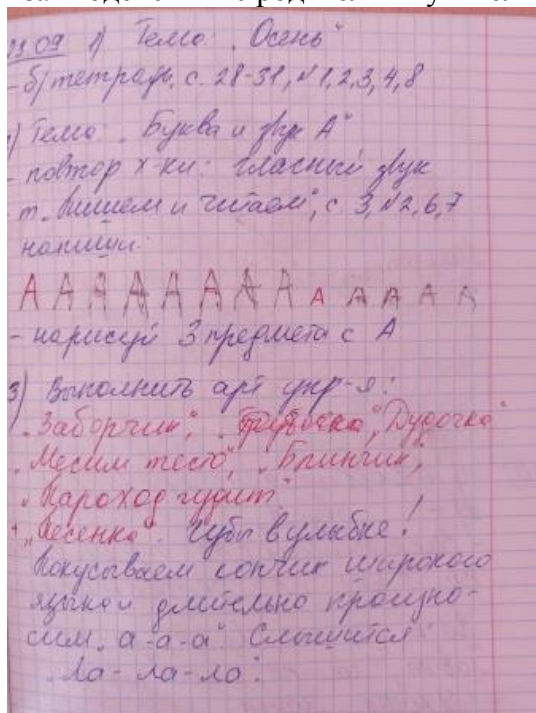 23.09 1) Тема: „Осень"
- б) тетрадь, с. 28-31, №1,2,3,4,8
2) Тема: „Буква и звук А"
- повтор х-ки: гласный звук
т. „Пишем и читаем", с. 3, №2,6,7
напиши:
А А А А А А А А А А А А А
- нарисуй 3 предмета с А
3) Выполнить арт упр-я:
„Заборчик", „Трубочка", „Дудочка"
„Месим тесто", „Блинчик",
„Пароход гудит"
+ „Песенка". Губы в улыбке!
Покусываем кончик широкого
языка и длительно произно-
сим „а-а-а". Слышится
„Ла-ла-ла".